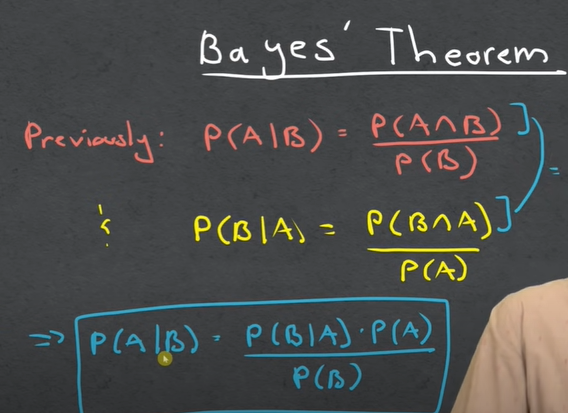 Bayes' Theorem
Previously: P(A|B) = P(A∩B) / P(B)
& P(B|A) = P(B∩A) / P(A)
=
⇒ P(A|B) = P(B|A) · P(A) / P(B)